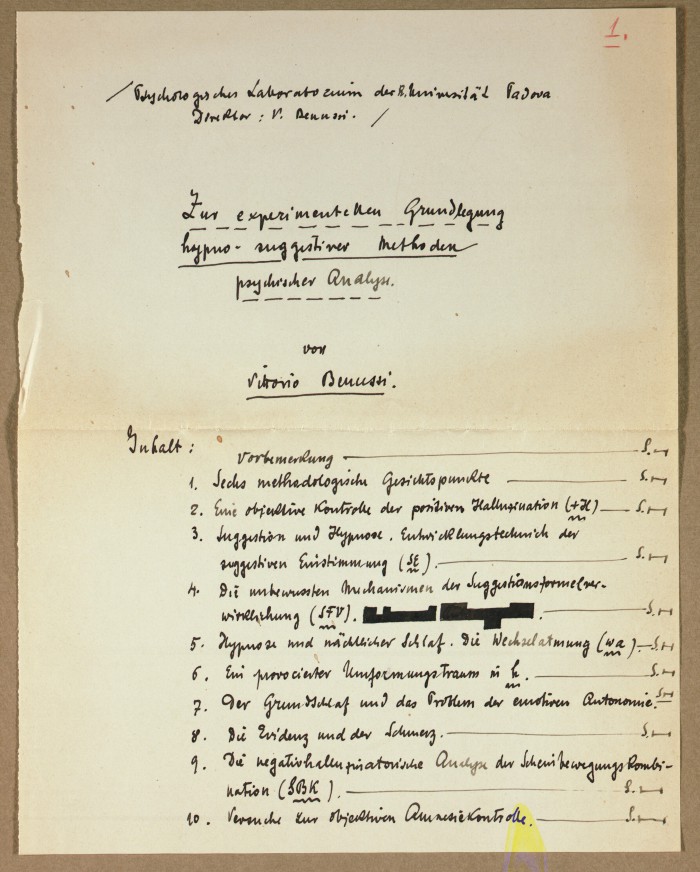 1.
/ Psychologisches Laboratorium der K. Universität Padova
Direktor: V. Benussi. /
Zur experimentellen Grundlegung
hypno-suggestiver Methoden
psychischer Analyse.
von
Vittorio Benussi.
Inhalt:
Vorbemerkung — S.
1. Sechs methodologische Gesichtspunkte — S.
2. Eine objektive Kontrolle der positiven Halluzination (+H) — S.
3. Suggestion und Hypnose. Entwicklungstechnik der
suggestiven Einstimmung (SE). — S.
4. Die unbewussten Mechanismen der Suggestionsformelver-
wirklichung (SFV). — S.
5. Hypnose und nächtlicher Schlaf. Die Wechselatmung (wa). — S.
6. Ein provocierter Umformungstraum in h. — S.
7. Der Grundschlaf und das Problem der emotiven Autonomie. S.
8. Die Evidenz und der Schmerz. — S.
9. Die negativhalluzinatorische Analyse der Scheinbewegungskombi-
nation (SBK). — S.
10. Versuche zur objektiven Amnesiekontrolle. — S.